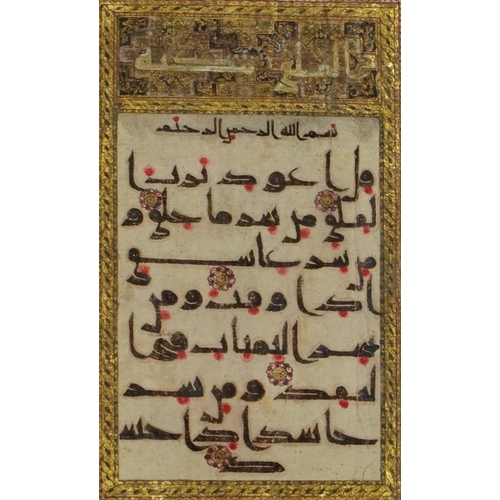 الفلق
بسم الله الرحمن الرحيم
قل اعوذ برب ا
لفلق من شر ما خلق و
من شر غاسق
اذا وقب و من
شر النفثت في ا
لعقد و من شر
حاسد اذا حس
د